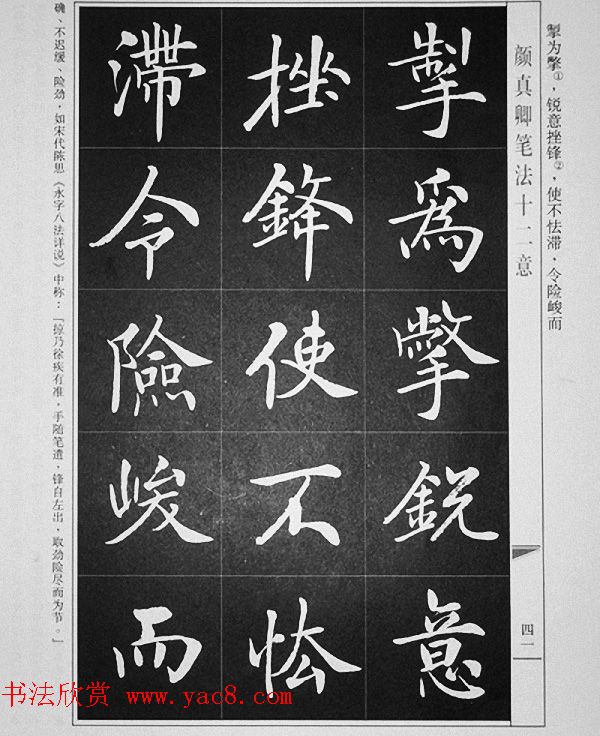 掣为撆①，锐意挫锋②，使不怯滞，令险峻而
颜真卿笔法十二意
四一
掣為撆鋭意
挫鋒使不怯
滯令險峻而
确、不迟缓、险劲，如宋代陈思《永字八法详说》中称：「掠乃徐疾有准，手随笔遣，锋自左出，取劲险尽而为节。」
书法欣赏 www.yac8.com